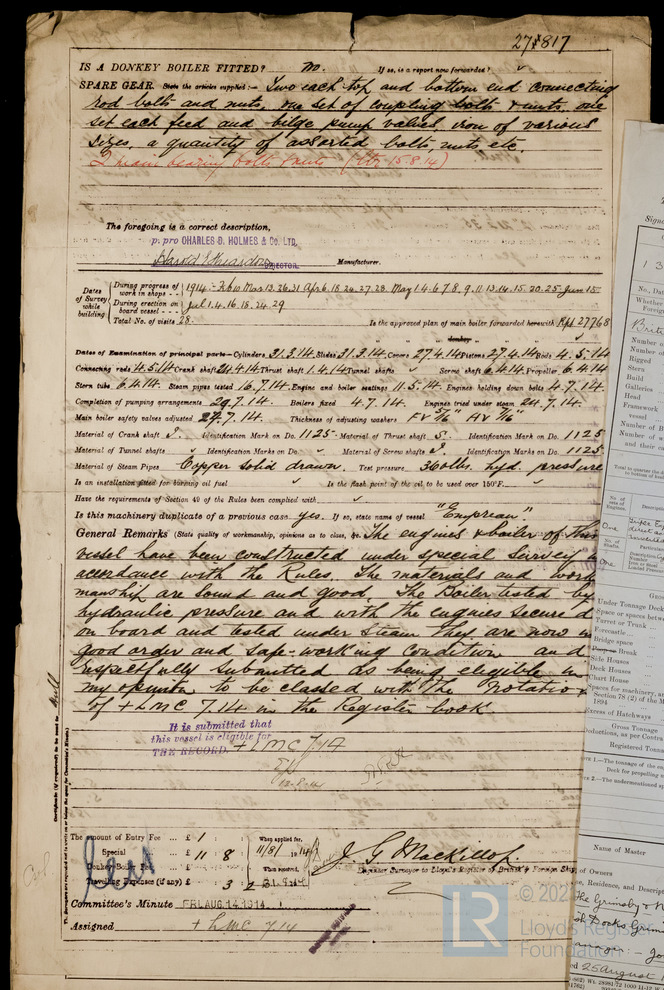 27817
IS A DONKEY BOILER FITTED? no. If so, is a report now forwarded? ✓
SPARE GEAR. State the articles supplied:— Two each top and bottom end connecting
rod bolts and nuts, one set of coupling bolts & nuts, one
set each feed and bilge pump valves, iron of various
sizes, a quantity of assorted bolts, nuts, etc.
2 main bearing bolts & nuts 15.8.14)
The foregoing is a correct description,
p. pro CHARLES D. HOLMES & Co. LTD.
Harold DIRECTOR. Manufacturer.
Dates of Survey while building
During progress of work in shops -- 1914:- Feb 10 Mar 13. 26. 31 Apr 6. 18. 24. 27. 28. May 1. 4. 6. 7. 8. 9. 11. 13. 14. 15. 20. 25. Jun 15
During erection on board vessel --- Jul 1. 4. 16. 18. 24. 29
Total No. of visits 28. Is the approved plan of main boiler forwarded herewith 27768
" " donkey " " " ✓
Dates of Examination of principal parts—Cylinders 31.3.14. Slides 31.3.14. Covers 27.4.14 Pistons 27.4.14 Rods 4.5.14
Connecting rods 4.5.14 Crank shaft Thrust shaft 1.4.14 Tunnel shafts ✓ Screw shaft 6.4.14 Propeller 6.4.14
Stern tube 6.4.14 Steam pipes tested 16.7.14. Engine and boiler seatings 11.5.14. Engines holding down bolts 4.7.14.
Completion of pumping arrangements 29.7.14. Boilers fixed 4.7.14. Engines tried under steam 24.7.14.
Main boiler safety valves adjusted 24.7.14. Thickness of adjusting washers F V 5/16" A V 7/16"
Material of Crank shaft S. Identification Mark on Do. 1125 Material of Thrust shaft S. Identification Mark on Do. 1125
Material of Tunnel shafts ✓ Identification Marks on Do. ✓ Material of Screw shafts S Identification Marks on Do. 1125
Material of Steam Pipes Copper solid drawn. Test pressure 360 lbs. hyd. pressure
Is an installation fitted for burning oil fuel ✓ Is the flash point of the oil to be used over 150°F. ✓
Have the requirements of Section 49 of the Rules been complied with ✓
Is this machinery duplicate of a previous case yes. If so, state name of vessel "Empyrean"
General Remarks (State quality of workmanship, opinions as to class, &c. The engines & boiler of this
vessel have been constructed under special Survey in
accordance with the Rules. The materials and work
manship are sound and good. The Boiler tested by
hydraulic pressure and with the engines secured
on board and tested under steam they are now in
good order and safe working condition and
respectfully submitted as being eligible in
my opinion to be classed with the notation
of + LMC 7.14 in the Register book.
It is submitted that
this vessel is eligible for
THE RECORD. + LMC 7.14
The amount of Entry Fee ... £ 1 : : When applied for,
Special ... £ 11 : 8 : 11/8/1914
Donkey Boiler Fee ... £ : : When received,
Travelling Expenses (if any) £ : 3 : 2
J. G. Mackillop
Engineer Surveyor to Lloyd's Register of British & Foreign Shipping
Committee's Minute FRI. AUG. 14. 1914
Assigned + LMC 7.14
Certificate (if required) to be sent to Hull
© 202
LR
Lloyd's Register
Foundation
Name of Master
The Grimsby & N
sh Docks Grim
25 August